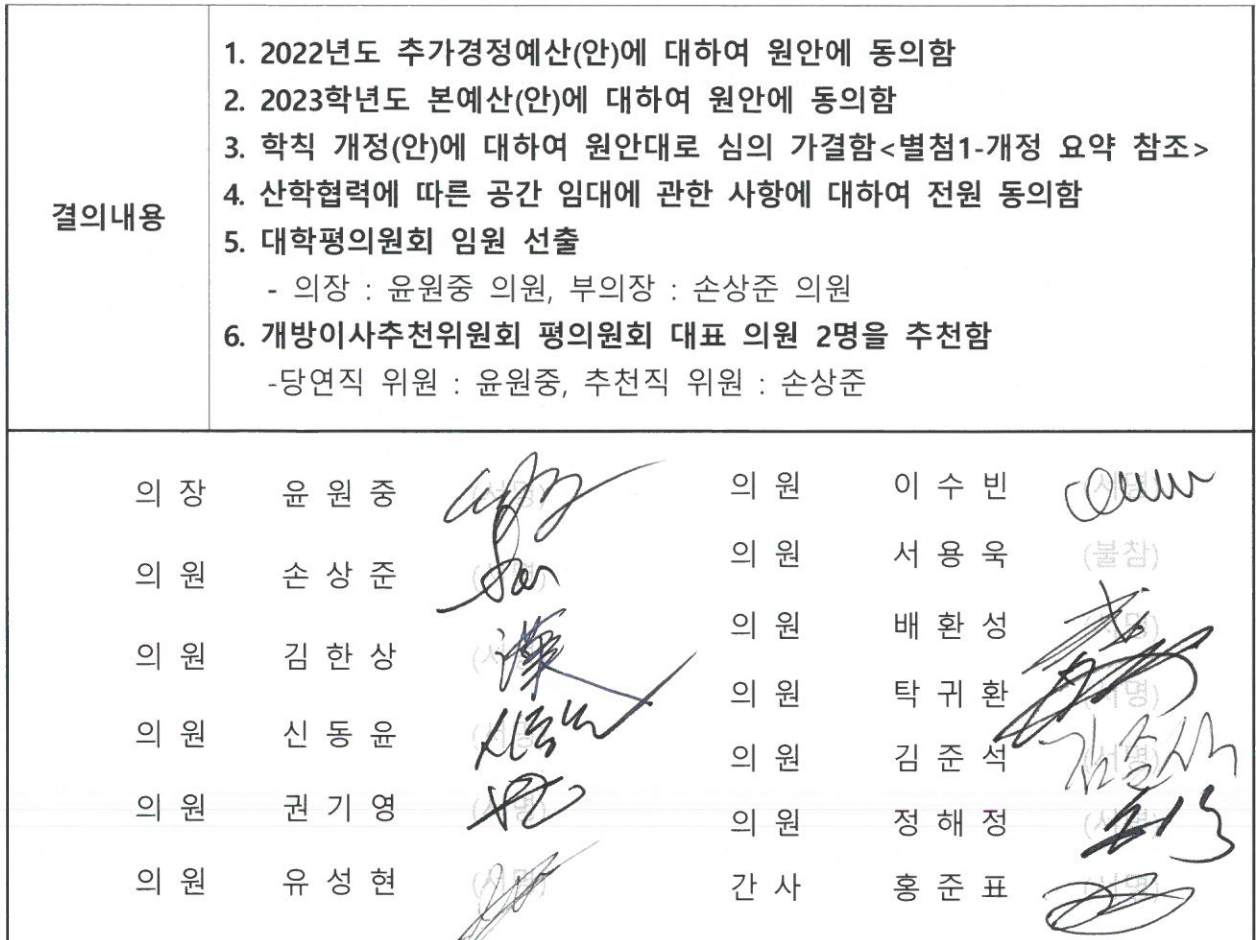 결의내용
1. 2022년도 추가경정예산(안)에 대하여 원안에 동의함
2. 2023학년도 본예산(안)에 대하여 원안에 동의함
3. 학칙 개정(안)에 대하여 원안대로 심의 가결함<별첨1-개정 요약 참조>
4. 산학협력에 따른 공간 임대에 관한 사항에 대하여 전원 동의함
5. 대학평의원회 임원 선출
- 의장 : 윤원중 의원, 부의장 : 손상준 의원
6. 개방이사추천위원회 평의원회 대표 의원 2명을 추천함
-당연직 위원 : 윤원중, 추천직 위원 : 손상준
의 장 윤 원 중 (서명)
의 원 손 상 준 (서명)
의 원 김 한 상 (서명)
의 원 신 동 윤 (서명)
의 원 권 기 영 (서명)
의 원 유 성 현 (서명)
의 원 이 수 빈 (서명)
의 원 서 용 욱 (불참)
의 원 배 환 성 (서명)
의 원 탁 귀 환 (서명)
의 원 김 준 석 (서명)
의 원 정 해 정 (서명)
간 사 홍 준 표 (서명)